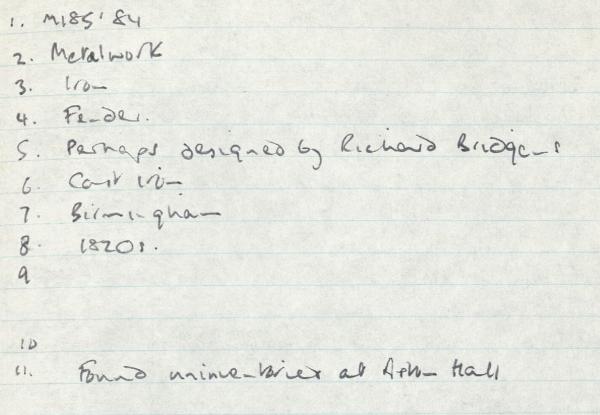 1. M185'84
2. Metalwork
3. Iron
4. Fender.
5. Perhaps designed by Richard Bridgens
6. Cast iron
7. Birmingham
8. 1820s.
9
10
11. Found uninventoried at Aston Hall